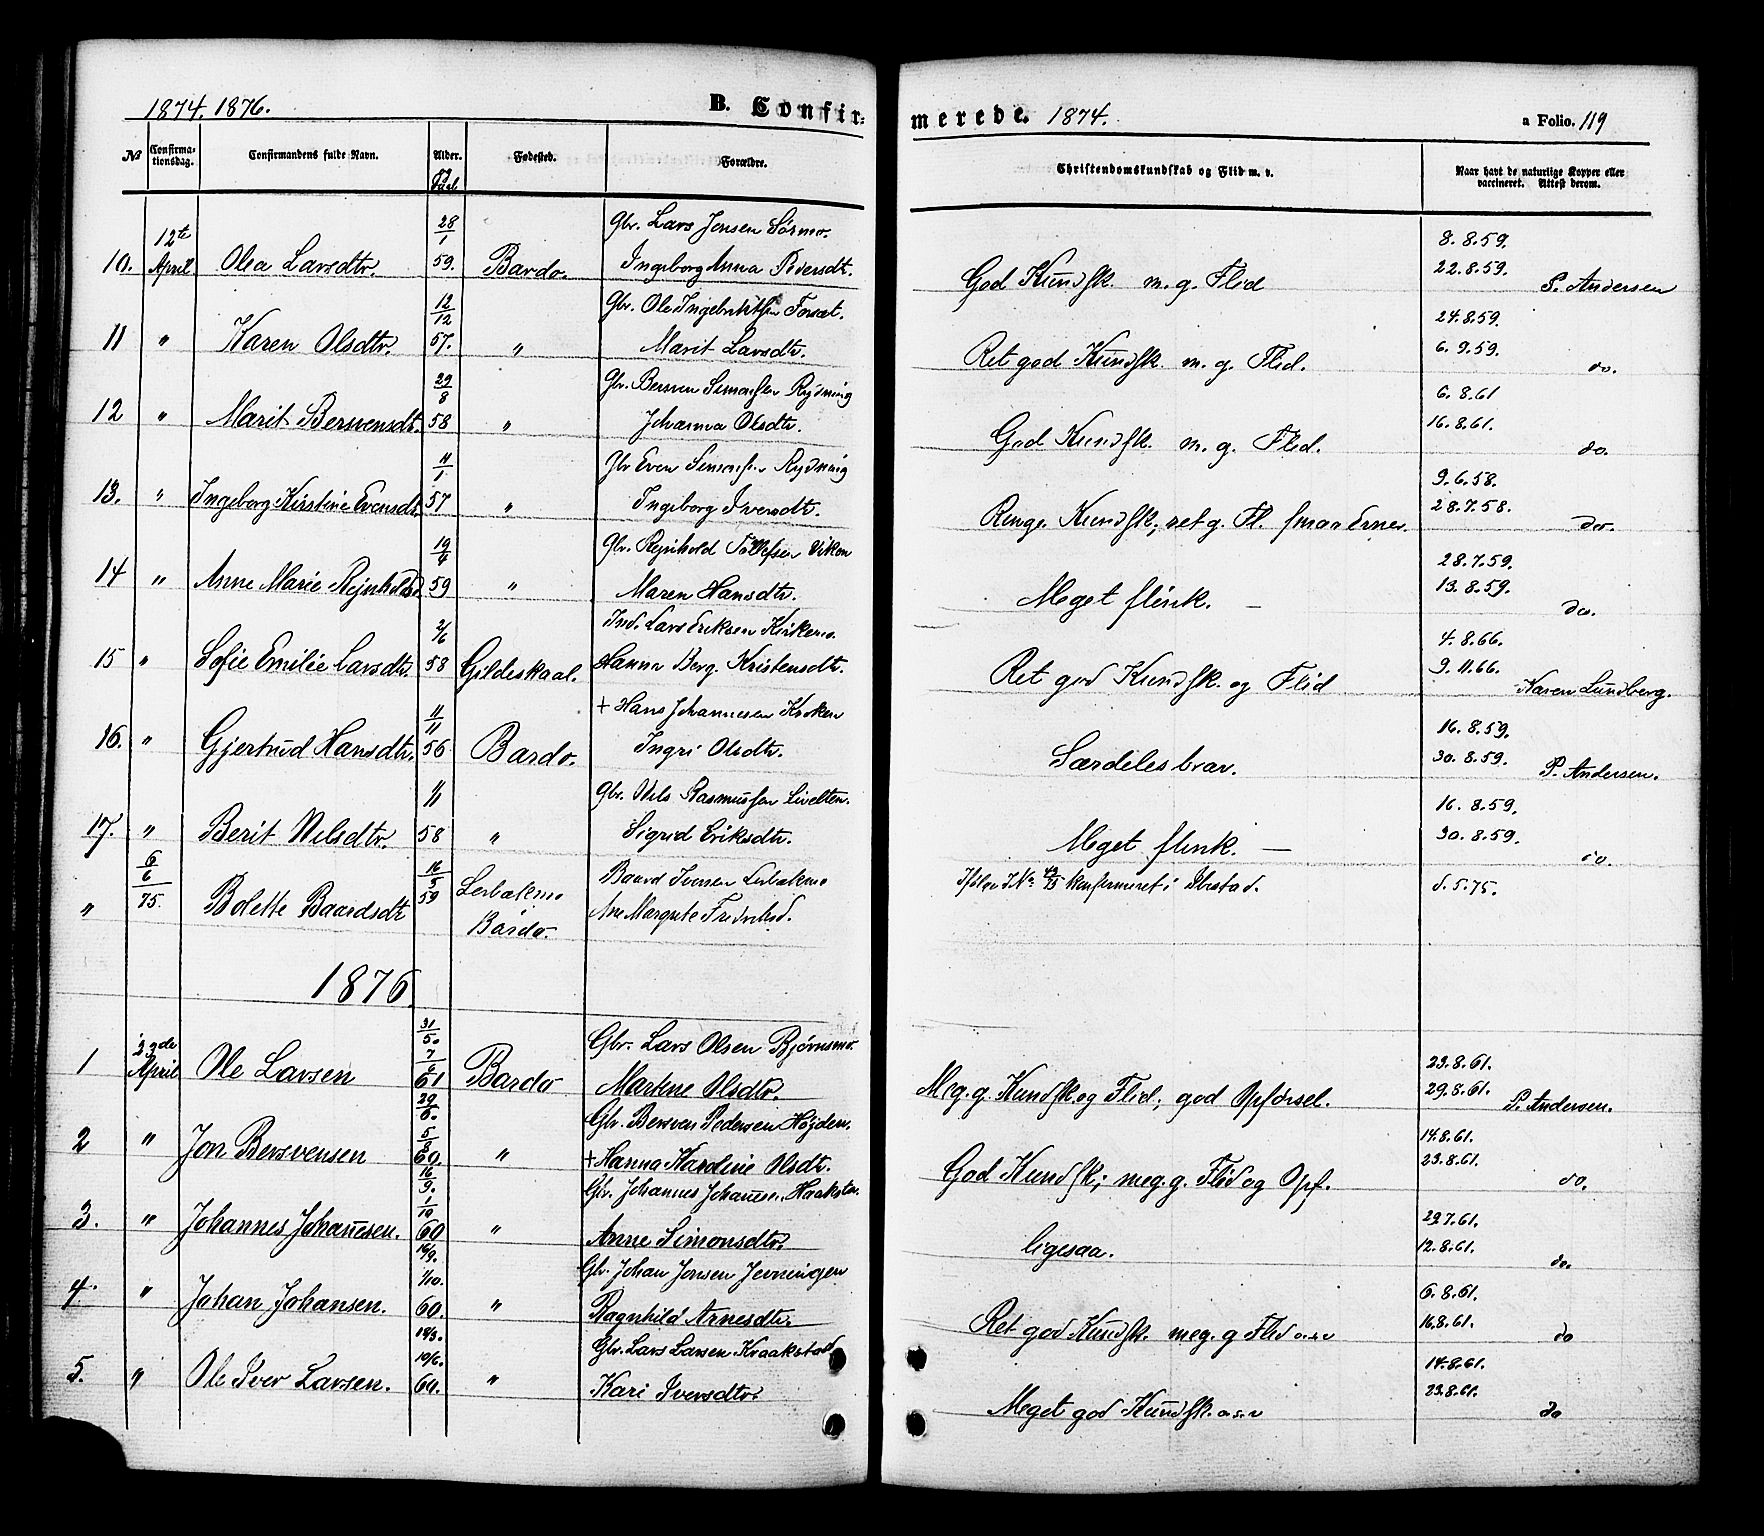 1874. 1876.
B. Confir-
merede. 1874.
a Folio. 119
No
Confirma-
tionsdag.
Confirmandens fulde Navn.
Alder.
Fødested.
Forældre.
Christendomskundskab og Flid m. v.
Naar havt de naturlige Kopper eller
vaccineret. Attest derom.
28/1 Gbr. Lars Jensen Sørmo.
12te
8.8.59.
10. April Olea Larsdtr. 59. Bardo. Ingeborg Anna Pedersdt.
God Kundsk. m. g. Flid 22.8.59. P. Andersen
12/12 Gbr. Ole Ingebrigtsen Forset.
24.8.59.
11 " Karen Olsdtr. 57. " Marit Larsdtr.
Ret god Kundsk. m. g. Flid. 6. 9.59. do.
29/8 Gbr. Bersven Simonsen Rydning
6. 8.61
12 " Marit Bersvensdt. 58 " Johanna Olsdtr.
God Kundsk. m. g. Flid. 16.8.61. do.
11/1 Gbr Even Simonsen Rydning
9.6.58.
13. " Ingeborg Kirstine Evensdt. 57 " Ingeborg Iversdtr.
Ringe Kundsk; ret g. Fl. 28.7.58. do.
19/4 Gbr. Rejnhold Tollefsen Viken
28.7.59.
14 " Anne Marie Rejnholds. 59 " Maren Hansdtr.
Meget flink. — 13.8.59. do.
2/6 Ind. Lars Eriksen Kirkemo.
4.8.66.
15 " Sofie Emilie Larsdtr. 58 Gildeskaal. Hanna Berg. Kristensdt.
Ret god Kundsk. og Flid 9.11.66. Karen Lundberg.
11/11 + Hans Johannesen Kroken
16.8.59.
16. " Gjertrud Hansdtr. 56 Bardo. Ingri Olsdtr.
Særdeles brav. 30.8.59. P. Andersen.
Gbr. Nils Rasmussen Livelten.
16. 8.59.
17. " Berit Nilsdtr. 58 " Sigrid Eriksdtr.
Meget flink. — 30.8.59. do.
6/6 75. 16/5 Baard Iversen Lerbakmo
" Bolette Baardsdtr 59 Lerbakmo Bardo. Ane Margrete
konfirmeret i Ibestad. 5.75.
1876.
31/5. Gbr. Lars Olsen Bjørnsmo.
23.8.61.
1 23de April Ole Larsen 7/6 61 Bardo Martine Olsdtr.
Meg. g. Kundsk. og Flid; god Opførsel. 29.8.61. P. Andersen.
29/6. Gbr. Bersvan Pedersen Højden.
14.8.61.
2 " Jon Bersvensen 5/8 60. " + Hanna Karoline Olsdtr.
God Kundsk; meg. g. Flid og Opf. 23.8.61. do.
16/9. Gbr. Johannes Johannesen
29.7.61.
3. " Johannes Johannesen. 1/10 60 " Anne Simonsdtr.
ligesaa. 12.8.61. do.
16/9. Gbr. Johan Jonsen
6.8.61.
4. " Johan Johansen. 1/10. 60. " Ragnhild Arnesdtr.
Ret god Kundsk. meg. g Flid o.s.v 16.8.61. do
18/3. Gbr. Lars Larsen Kraakstad
14.8.61.
5. " Ole Iver Larsen. 10/6. 60. " Kari Iversdtr.
Meget god Kundsk. o.s.v 23.8.61. do